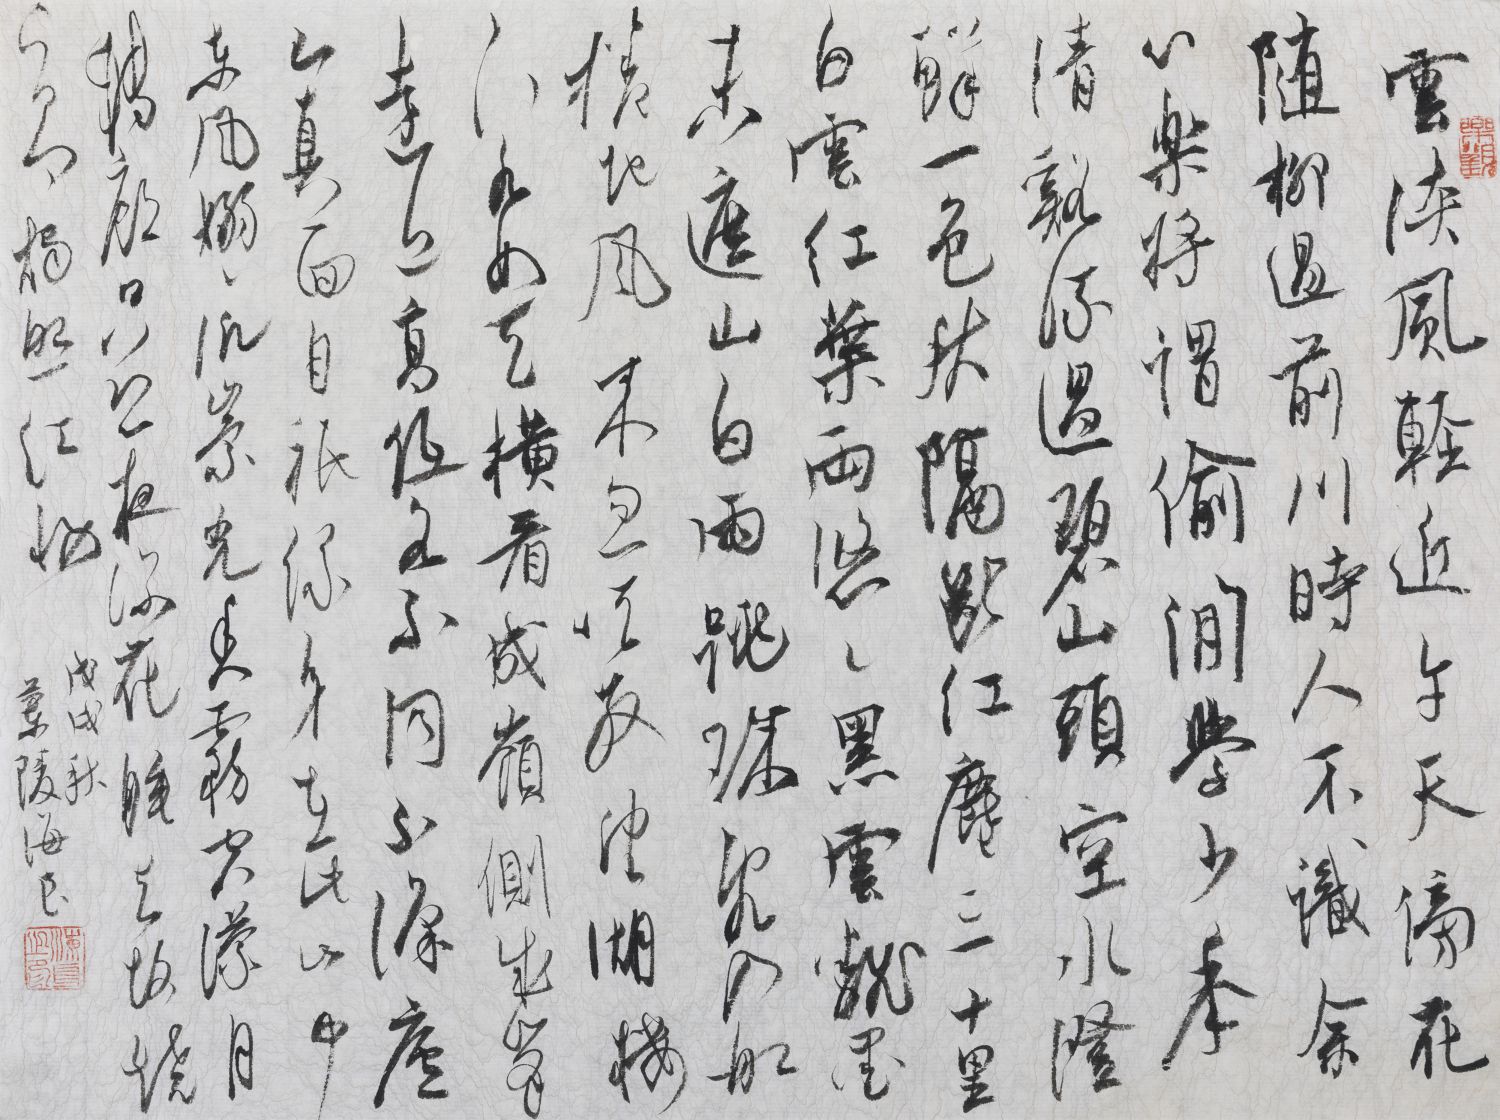 雲淡風輕近午天傍花
随柳過前川時人不識余
心樂將謂偷閒學少年
清谿流過碧山頭空水澄
鮮一色秋隔斷紅塵三十里
白雲紅葉兩悠々黑雲翻墨
未遮山白雨跳珠亂入船
捲地風来忽吹散望湖樓
下水如天橫看成嶺側成峯
遠近高低各不同不識廬
山真面目祇緣身在此山中
东风嫋々泛崇光香霧空濛月
轉廊只恐夜深花睡去故燒
高燭照红妝
戊戌秋
蘭陵海